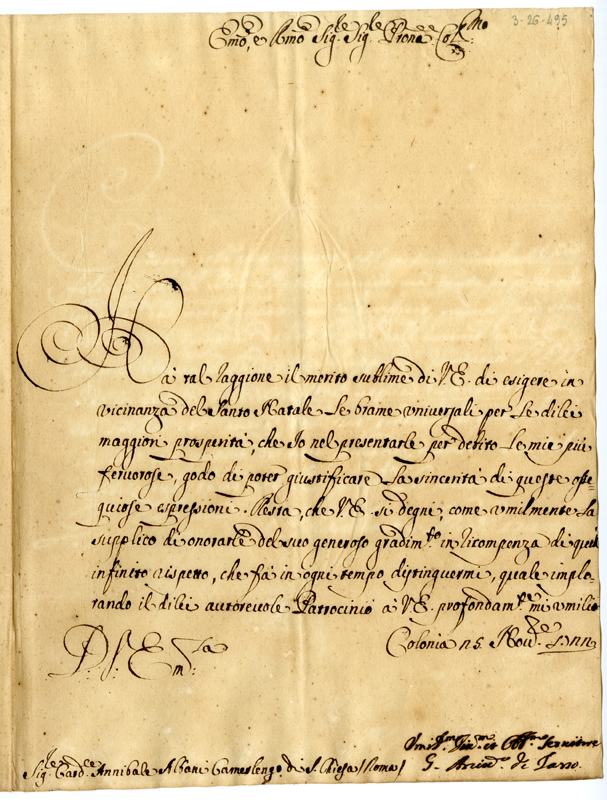 3-26-495
Emo, e Rmo Sig.re Sig.re Prone Col.mo
Hà tal raggione il merito sublime di V.E. di esigere in
vicinanza del Santo Natale le brame universali per le di lei
maggiori prosperità, che Io nel presentarle per debito le mie più
fervorose, godo di poter giustificare la sincerità di queste osse
quiose espressioni. Resta, che V.E. si degni, come umilmente la
supplico di onorarle del suo generoso gradim.to in ricompenza di quell
infinito rispetto, che fà in ogni tempo distinguermi, quale implo-
rando il di lei autorevole Patrocinio à V.E. profondam.te mi umilio
D. V. Em.za
Colonia 25 Nov.
Sig.re Card.le Annibale Albani Camerlengo di S. Chiesa /Roma/
Servitore
G. di